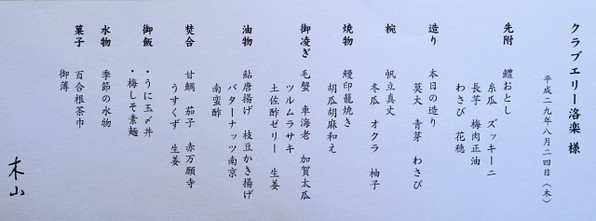 クラブエリー洛楽 様
平成二九年八月二四日(木)
先附 鱧おとし
糸瓜 ズッキーニ
長芋 梅肉正油
わさび 花穂
造り 本日の造り
莫大 青芽 わさび
椀 帆立真丈
冬瓜 オクラ 柚子
焼物 鰻印籠焼き
胡瓜胡麻和え
御凌ぎ 毛蟹 車海老 加賀太瓜
ツルムラサキ
土佐酢ゼリー 生姜
油物 鮎唐揚げ 枝豆かき揚げ
バターナッツ南京
南蛮酢
焚合 甘鯛 茄子 赤万願寺
うすくず 生姜
御飯 ・うに玉〆丼
・梅しそ素麺
水物 季節の水物
菓子 百合根茶巾
御薄
木山